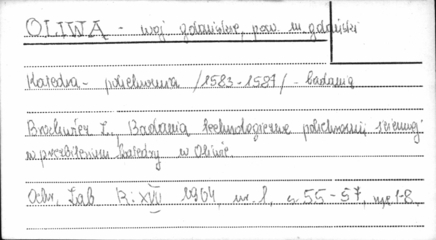 OLIWA - woj. gdańskie, pow. m. gdański
Katedra - polichromia /1583-1587/ - badania
Z., Badania technologiczne polichromii ściennej
w prezbiterium katedry w Oliwie.
Ochr. Zab. R: XVII 1964, nr. 1, s. 55-57, ryc. 1-8.